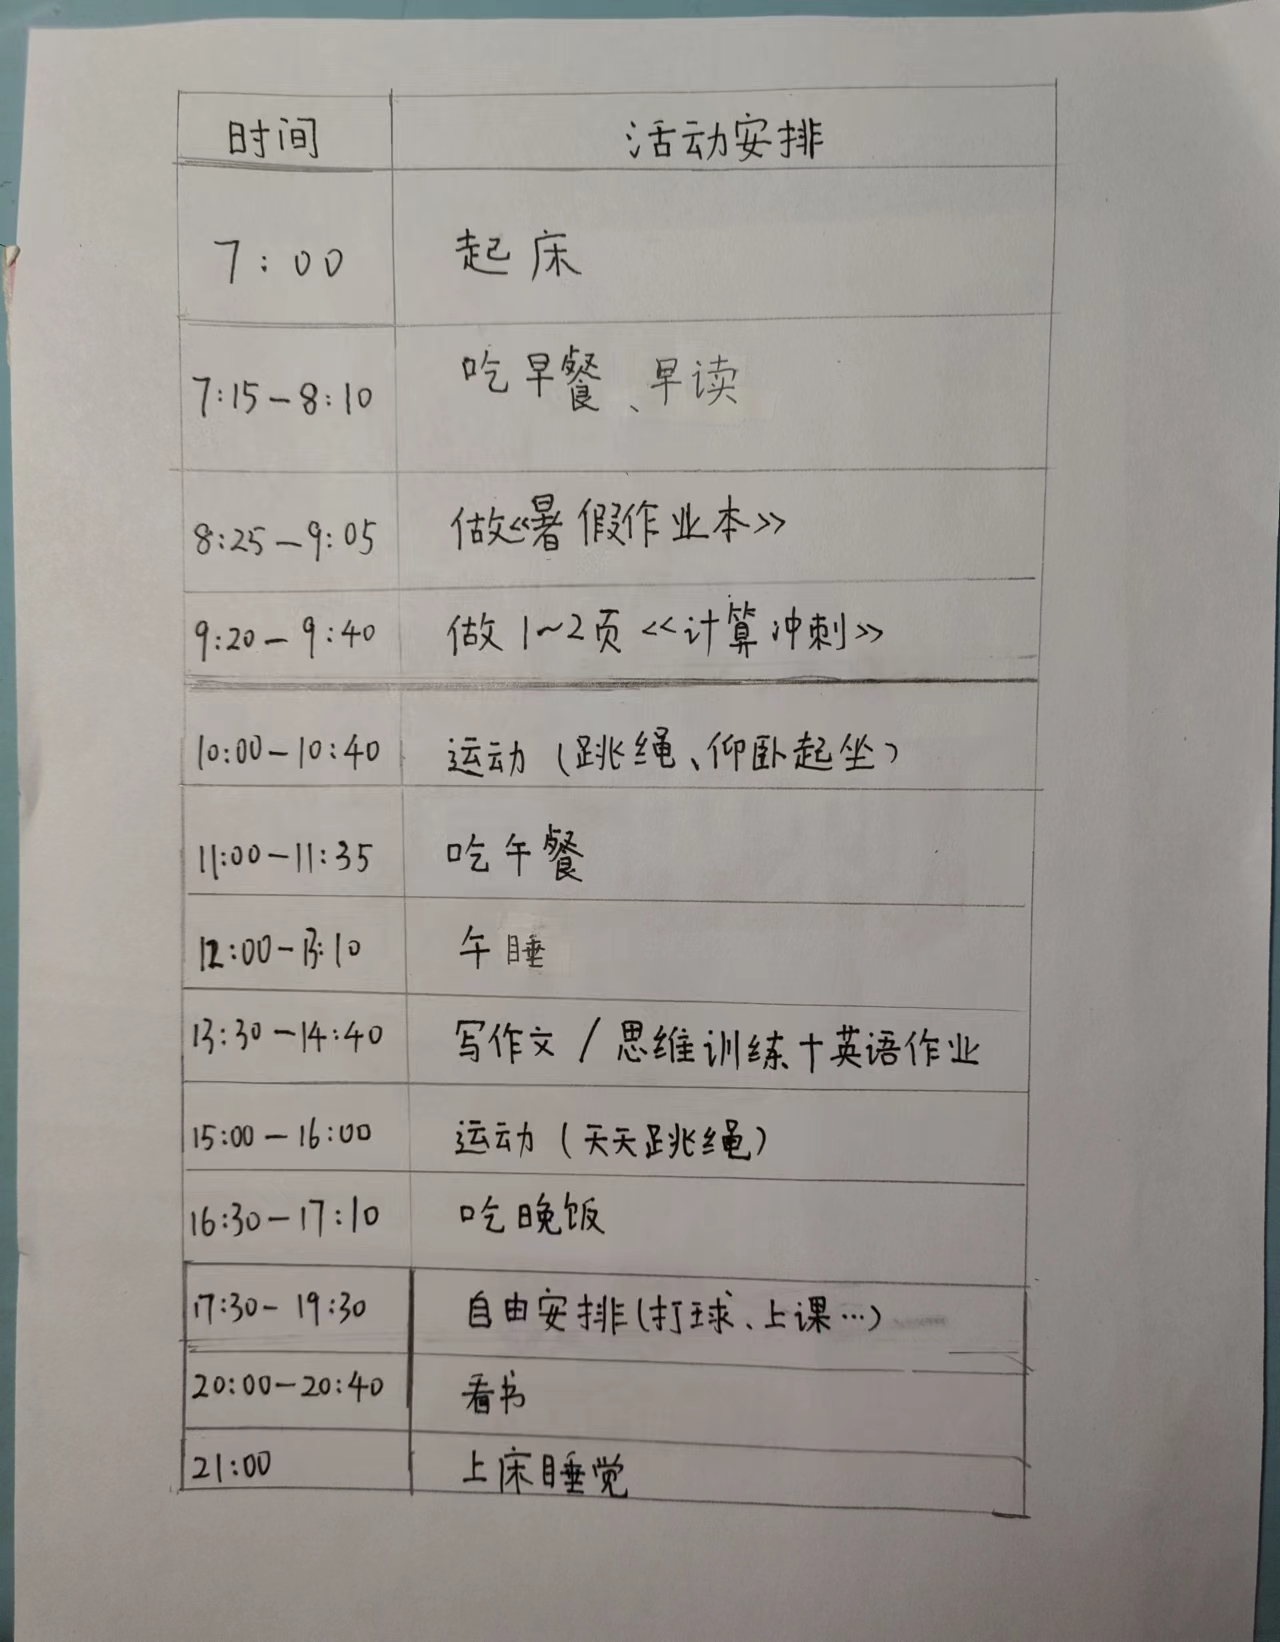 时间 活动安排
7:00 起床
7:15-8:10 吃早餐、早读
8:25-9:05 做《暑假作业本》
9:20-9:40 做1~2页《计算冲刺》
10:00-10:40 运动(跳绳、仰卧起坐)
11:00-11:35 吃午餐
12:00-13:10 午睡
13:30-14:40 写作文/思维训练+英语作业
15:00-16:00 运动(天天跳绳)
16:30-17:10 吃晚饭
17:30-19:30 自由安排(打球、上课…)
20:00-20:40 看书
21:00 上床睡觉